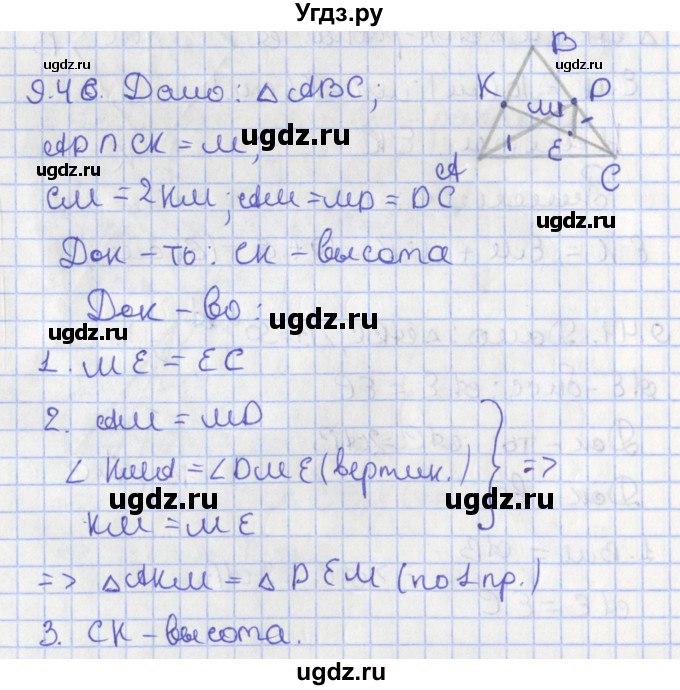 Угдз.ру
9.46. Дано: △ABC;
AD ∩ CK = M;
CM = 2KM; AM = MD = DC
Док-ть: CK - высота
Док-во:
1. ME = EC
2. AM = MD
∠KMA = ∠DME (вертик.)
KM = ME
} =>
=> △AKM = △DEM (по 1 пр.)
3. CK - высота.
B
K
M
D
1
E
A
C
ugdz.ru
ugdz.ru
ugdz.ru
ugdz.ru
ugdz.ru
ugdz.ru
ugdz.ru
ugdz.ru
ugdz.ru
ugdz.ru
ugdz.ru
ugdz.ru
ugdz.ru
ugdz.ru